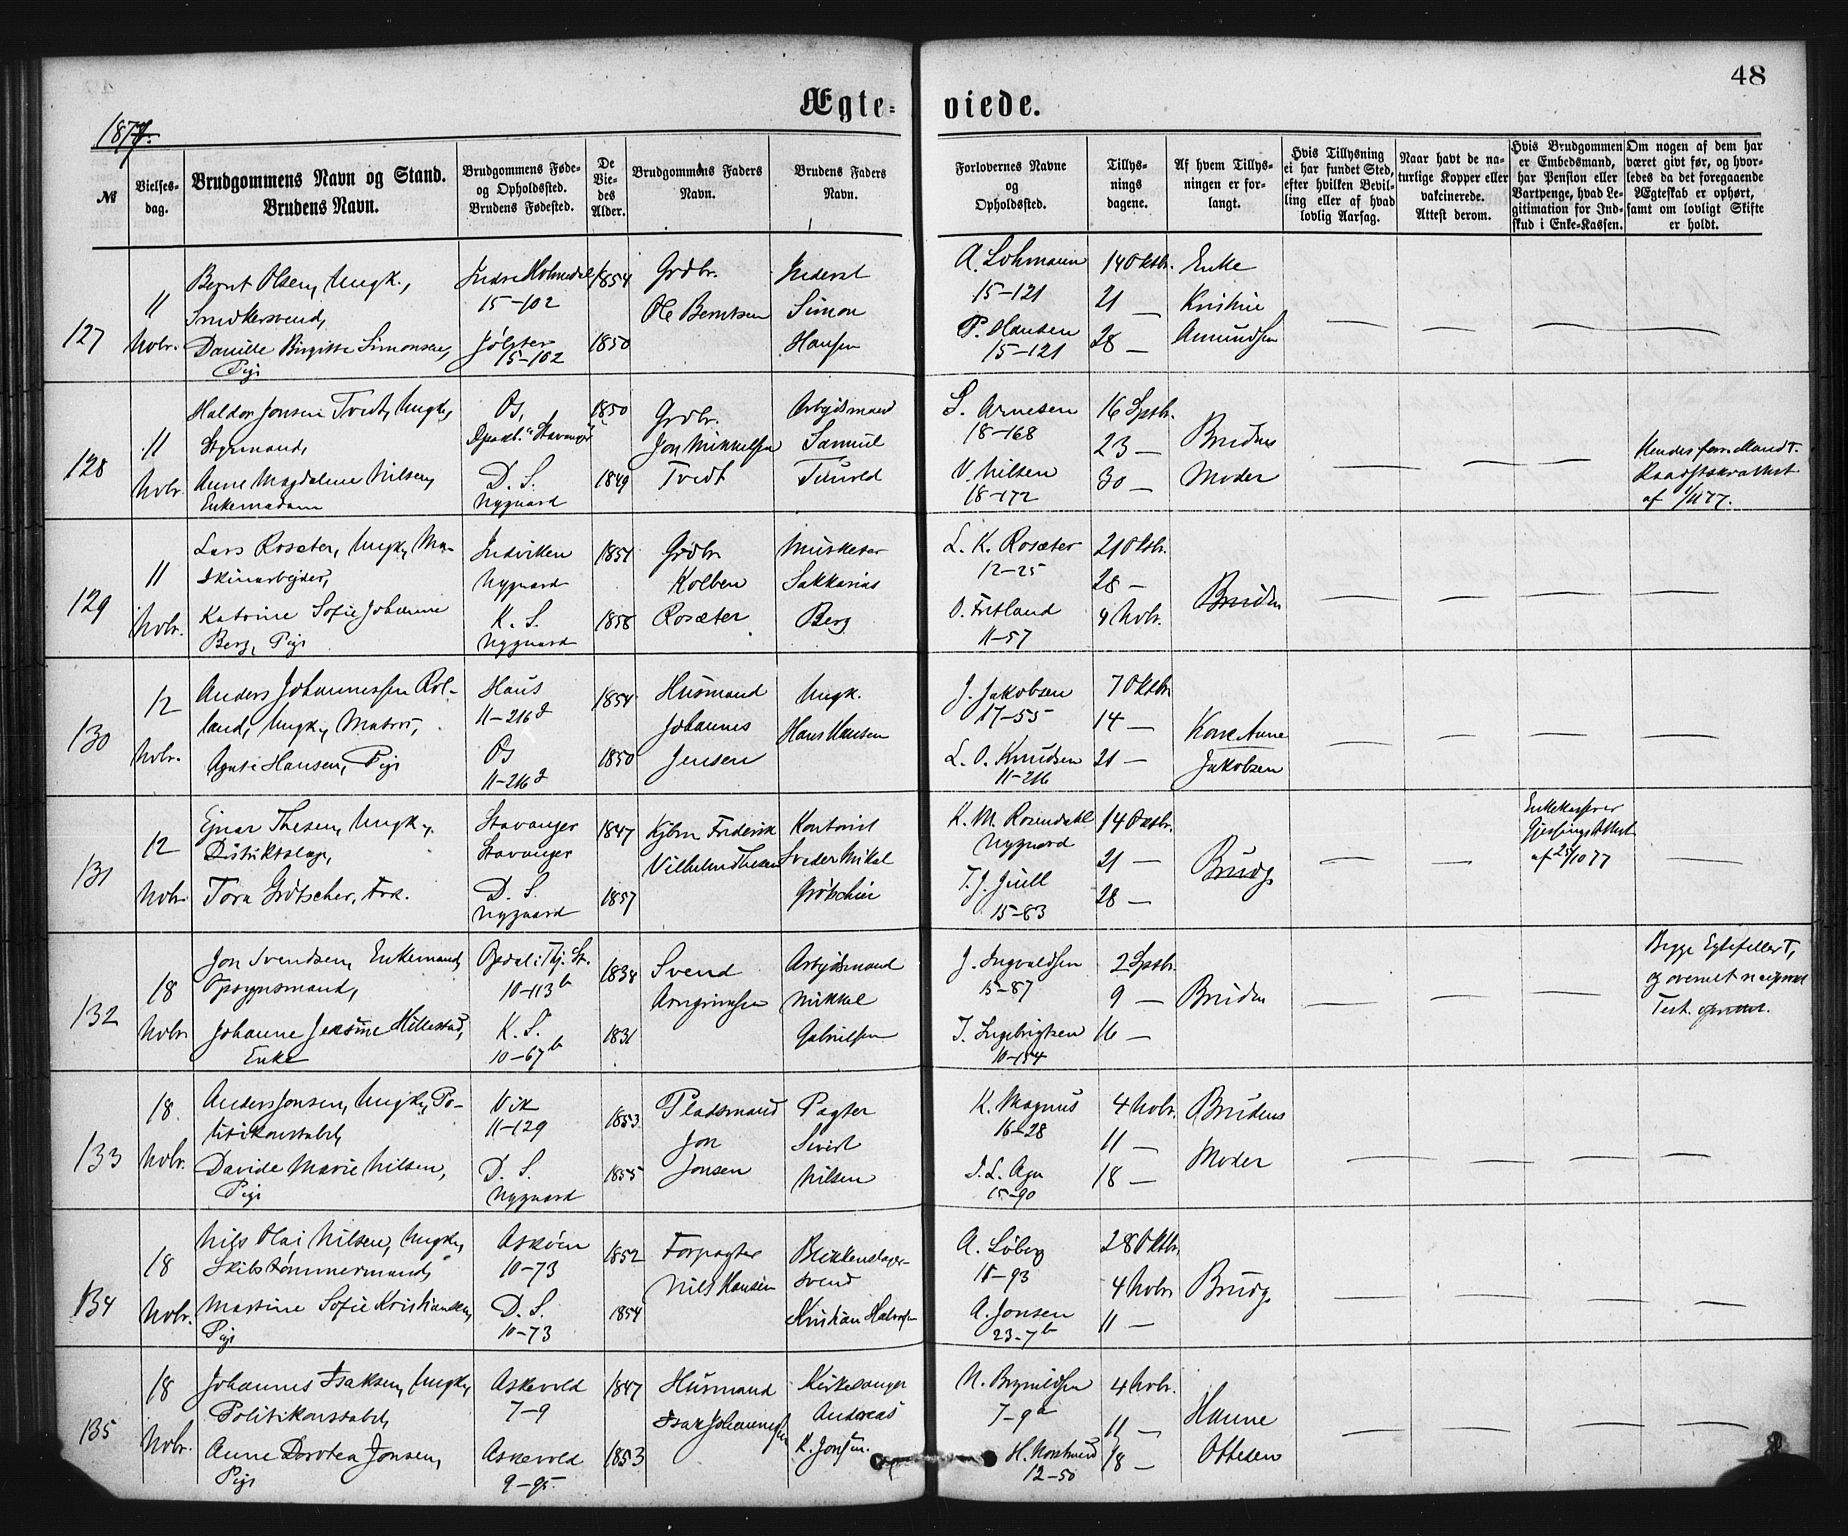 48
Ægte- viede.
1877.
№
Vielses-
dag.
Brudgommens Navn og Stand.
Brudens Navn.
Brudgommens Føde-
og Opholdssted.
Brudens Fødested.
De
Vie-
des
Alder.
Brudgommens Faders
Navn.
Brudens Faders
Navn.
Forlovernes Navne
og
Opholdssted.
Tillys-
nings
dagene.
Af hvem Tillys-
ningen er for-
langt.
Hvis Tillysning
ei har fundet Sted,
efter hvilken Bevil-
ling eller af hvad
lovlig Aarsag.
Naar havt de na-
turlige Kopper eller
vakcinerede.
Attest derom.
Hvis Brudgommen
er Embedsmand,
har Pension eller
Vartpenge, hvad Le-
gitimation for Ind-
skud i Enke-Kassen.
Om nogen af dem har
været givt før, og hvor-
ledes da det foregaaende
Ægteskab er ophørt,
samt om lovligt Skifte
er holdt.
127
11
Novbr.
Bernt Olsen, Ungk.,
Snedkersvend,
Danille Birgitte Simonsen,
Pige
Indre Holmedal
15-102
Jølster
15-102
1854
1850
Grdbr.
Ole Berntsen
Inderst
Simon
Hansen
A. Lohmann
15-121
P. Hansen
15-121
14 Oktbr.
21 —
28 —
Enke
Kristine
Amundsen
128
11
Novbr.
Haldor Jonsen Tvedt, Ungk.,
Styrmand,
Anne Magdalene Nilsen,
Enkemadam
Os,
"Stavanger"
D. S.
Nygaard
1850
1849
Grdbr.
Jon Mikkelsen
Tvedt
Arbejdsmand
Samuel
S. Arnesen
18-168
N. Nilsen
18-172
16 Sptbr.
23 —
30 —
Brudens
Moder
Hendes forr. Mand †.
af 1/11 77.
129
11
Novbr.
Lars Rosæter, Ungk., Ma-
skinarbejder,
Katrine Sofie Johanne
Berg, Pige
Indviken
Nygaard
K. S.
Nygaard
1854
1858
Grdbr.
Kolben
Rosæter
Musketer
Sakkarias
Berg
L. K. Rosæter
12-25
O. Fretland
11-57
21 Oktbr.
28 —
4 Novbr.
Bruden
130
12
Novbr.
Anders Johannessen Rol-
land, Ungk., Matros,
Agate Hansen, Pige
Haus
11-216 d
Os
11-216 d
1854
1850
Husmand
Johannes
Jensen
Ungk.
Hans Hansen
J. Jakobsen
17-55
L. O. Knudsen
11-216
7 Oktbr.
14 —
21 —
Kone Anne
Jakobsen
131
12
Novbr.
Ejnar Thesen, Ungk.,
Distriktslæge,
Tora Grötscher, Frk.
Stavanger
Stavanger
D. S.
Nygaard
1847
1857
Kjbm. Frederik
Vilhelm Thesen
Kontorist
Mikal
K. M. Rosendahl
Nygaard
T. J. Juell
15-83
14 Oktbr.
21 —
28 —
Brudg.
Enkekasserer
Gjessings Attest
af 25/10 77
132
18
Novbr.
Jon Svendsen, Enkemand,
Opsynsmand,
Johanne Jensine Hillestad,
Enke
10-113 b
K. S.
10-67 b
1838
1831
Svend
Arngrimsen
Arbejdsmand
Mikkal
Gabrielsen
J. Ingvaldsen
15-87
T. Ingebrigtsen
10-154
2 Sptbr.
9 —
16 —
Bruden
Begge Egtefeller †,
133
18.
Novbr.
Anders Jonsen, Ungk., Po-
litikonstabel,
Davide Marie Nilsen,
Pige
Vik
11-129
D. S.
Nygaard
1853
1855
Pladsmand
Jon
Jonsen
Pagter
Sivert
Nilsen
K. Magnus
16-28
I. L. Aga
15-90
4 Novbr.
11 —
18 —
Brudens
Moder
134
18
Novbr.
Nils Olai Nilsen, Ungk.,
Skibstømmermand,
Martine Sofie Kristiansen,
Pige
Askøen
10-73
D. S.
10-73
1852
1854
Forpagter
Nils Hansen
Blikkenslager-
svend
Kristian Halvorsen
A. Løberg
18-93
A. Jonsen
23-7 b
28 Oktbr.
4 Novbr.
11 —
Brudg.
135
18
Novbr.
Johannes Isaksen, Ungk.,
Politikonstabel,
Anne Dorotea Jonsen,
Pige
Askevold
7-9
Askevold
9-95.
1847
1853
Husmand
Isak Johannessen
Kirkesanger
Andreas
K. Jonsen.
N. Brynildsen
7-9 a
12-50
4 Novbr.
11 —
18 —
Hanne
Ottesen